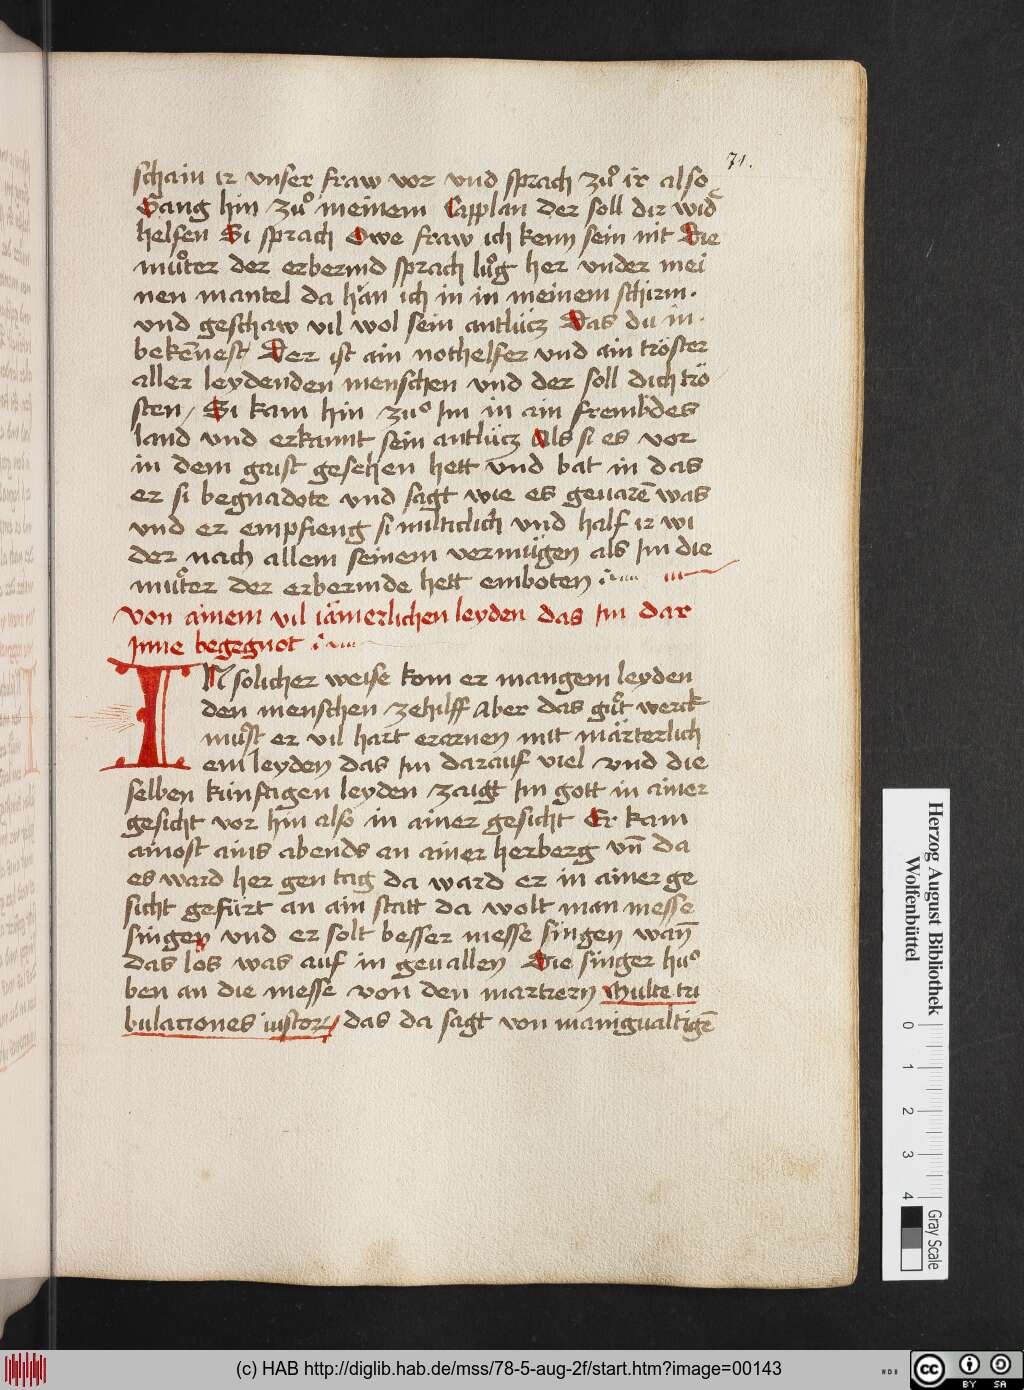 71.
schain ir vnser fraw vor vnd sprach zuͦ ir also
Gang hin zuͦ meinem Capplan der soll dir wid̄
helfen Si sprach Owe fraw ich kenn sein nit Die
muͦter der erbermd sprach luͦg her vnder mei
nen mantel da hän ich in in meinem schirm.
vnd geschaw vil wol sein antlücz Das du in.
bekēnest Der ist ain nothelfer vnd ain tröster
aller leydenden menschen vnd der soll dich trö
sten / Si kam hin zuͦ Im in ain frembdes
land vnd erkannt sein antlücz Als si es vor
in dem gaist gesehen hett vnd bat in das
er si begnadote vnd sagt wie es geuarē was
vnd er empfieng si milticlich vnd half ir wi
der nach allem seinem vermügen als Im die
muͦter der erbermde hett emboten
von ainem vil iämerlichen leyden das Im dar
Inne begegnot
IN solicher weise kom er mangem leyden
den menschen zehilff Aber das guͦt werck
muͦst er vil hart erarnen mit märterlich
em leyden das Im darauf viel vnd die
selben künftigen leyden zaigt Im gott in ainer
gesicht vor hin also in ainer gesicht Er kam
ainost ains abends an ainer herberg vn̄ da
es ward her gen tag da ward er in ainer ge
sicht gefürt an ain statt da wolt man messe
singen vnd er solt besser messe singen wan̄
das los was auf in geuallen Die singer huͦ
ben an die messe von den martrern Multe tri
bulationes iustor, das da sagt von manigualtigē
Herzog August Bibliothek
Wolfenbüttel
0 1 2 3 4
Gray Scale
(c) HAB http://diglib.hab.de/mss/78-5-aug-2f/start.htm?image=00143
cc BY SA